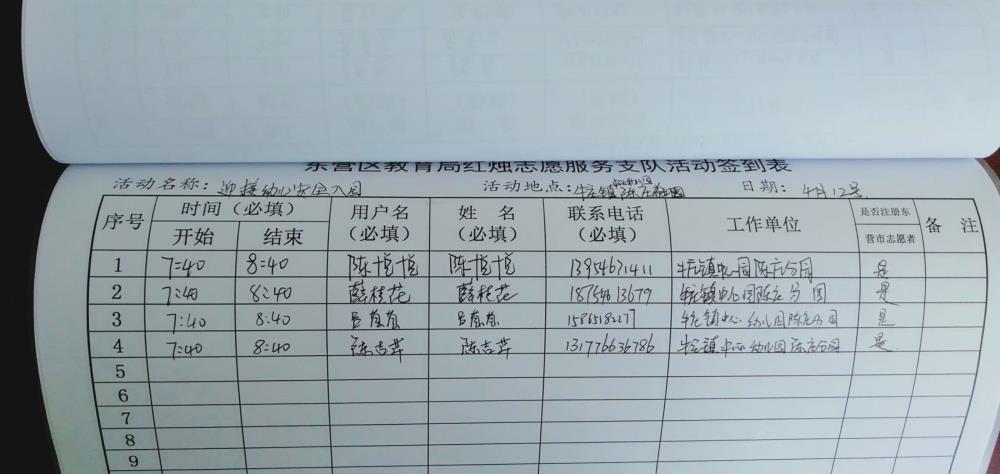 东营区教育局红烛志愿服务支队活动签到表
活动名称：迎接幼儿安全入园 活动地点：牛庄镇陈庄 日期：4月12号
序号 时间（必填） 用户名（必填） 姓 名（必填） 联系电话（必填） 工作单位 是否注册东营市志愿者 备 注
开始 结束
1 7:40 8:40 陈悦悦 陈悦悦 13954671411 牛庄镇中心园陈庄分园 是
2 7:40 8:40 薛桂花 薛桂花 18754613679 牛庄镇中心园陈庄分园 是
3 7:40 8:40 吕 吕 15865182277 牛庄镇中心幼儿园陈庄分园 是
4 7:40 8:40 陈吉芹 陈吉芹 131776636786 牛庄镇中心幼儿园陈庄分园 是
5
6
7
8
9